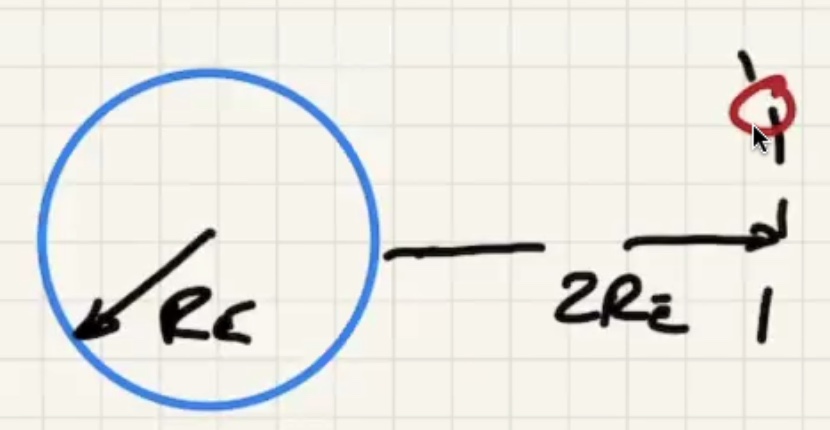 RE
2RE